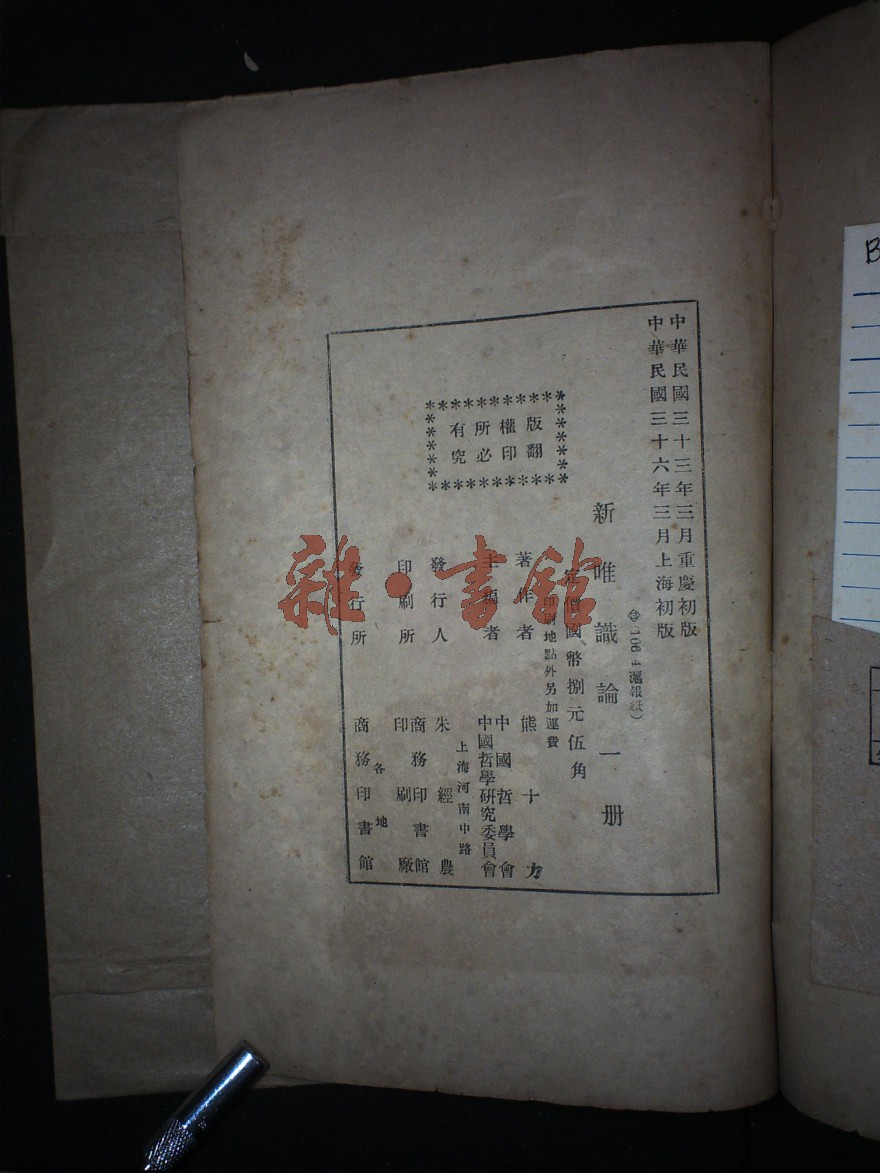 中華民國三十三年三月重慶初版
中華民國三十六年三月上海初版
106 4 滬報紙）
新唯識論一册
定價國幣捌元伍角
印刷地點外另加運費
版權所有
翻印必究
著作者 熊十力
主編者 中國哲學會
中國哲學研究委員會
發行人 朱經農
上海河南中路
印刷所 商務印書館
印刷廠
各地
發行所 商務印書館
雜·書館
B